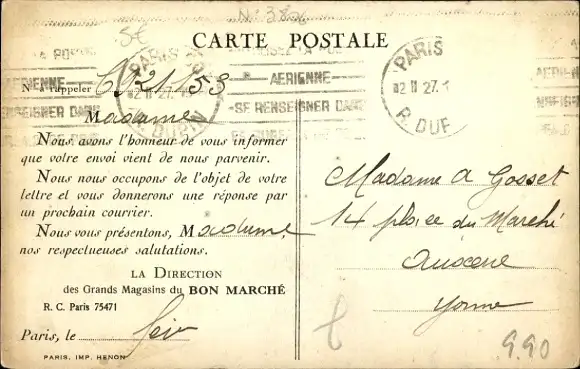 CARTE POSTALE
PARIS
12 II 27
R. DUPIN
AERIENNE
SE RENSEIGNER DANS
PARIS
12 II 27
AERIENNE
Nº à rappeler
Madame
Nous avons l'honneur de vous informer
que votre envoi vient de nous parvenir.
Nous nous occupons de l'objet de votre
lettre et vous donnerons une réponse par
un prochain courrier.
Nous vous présentons, Madame,
nos respectueuses salutations.
LA DIRECTION
des Grands Magasins du BON MARCHÉ
R. C. Paris 75471
Paris, le
PARIS, IMP. HENON
Madame A Gosset
14 place du Marché
Auxerre
Yonne
9.90